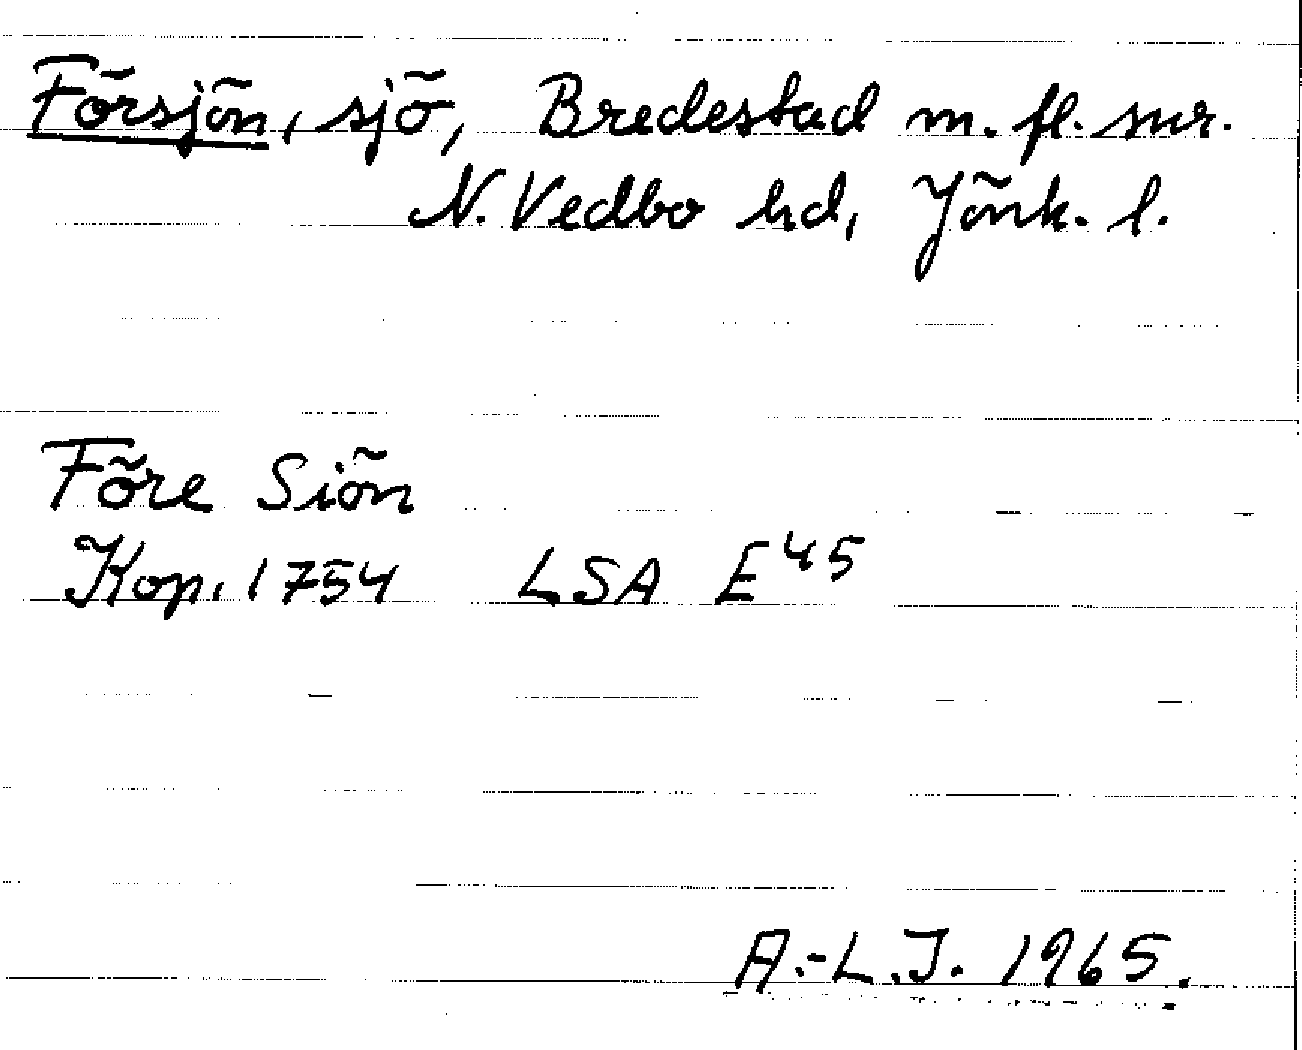 Försjön, sjö, Bredestad m. fl. snr.
N. Vedbo hd, Jönk. l.
Före Siön
Kop. 1754 LSA E45
A.-L.J. 1965.